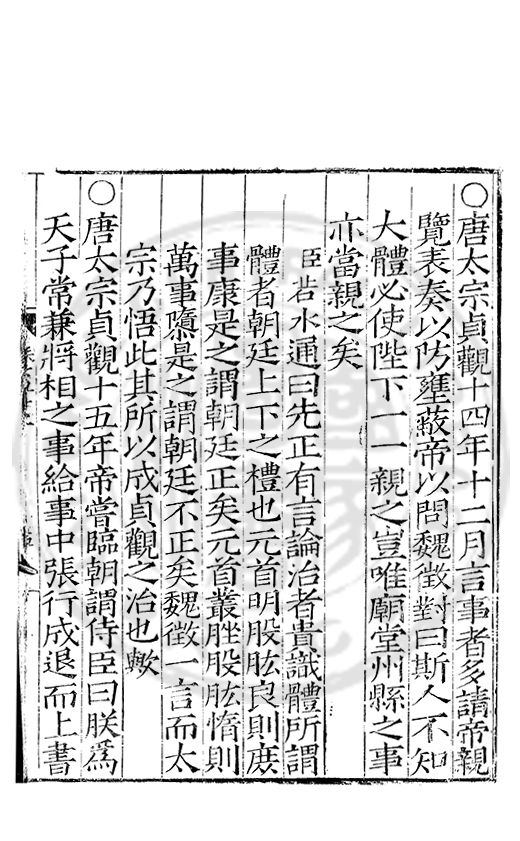 ○唐太宗貞觀十四年十二月言事者多請帝親
覽表奏以防壅蔽帝以問魏徵對曰斯人不知
大體必使陛下一一親之豈唯廟堂州縣之事
亦當親之矣
臣若水通曰先正有言論治者貴識體所謂
體者朝廷上下之禮也元首明股肱良則庶
事康是之謂朝廷正矣元首叢脞股肱惰則
萬事隳是之謂朝廷不正矣魏徵一言而太
宗乃悟此其所以成貞觀之治也歟
○唐太宗貞觀十五年帝嘗臨朝謂侍臣曰朕爲
天子常兼將相之事給事中張行成退而上書